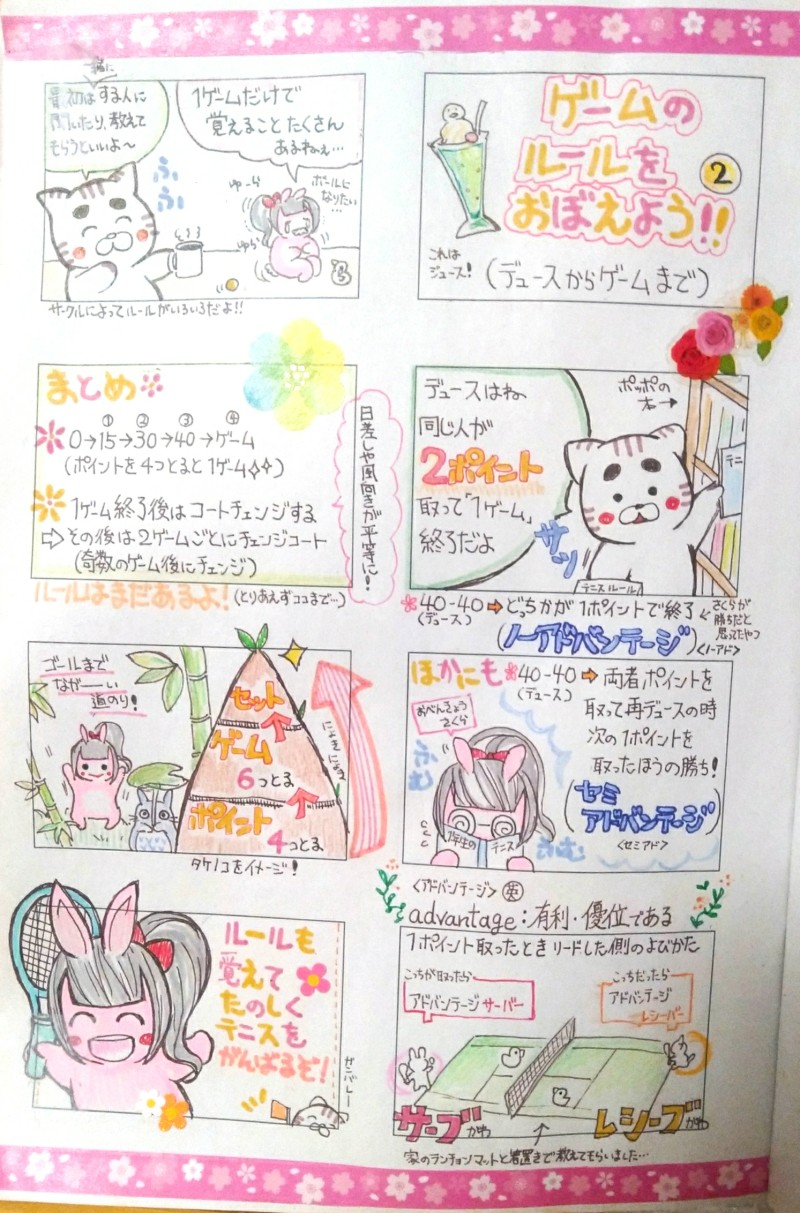 ゲームの
ルールを
おぼえよう!!
2
これは
ジュース!
(デュースからゲームまで)
デュースはね
同じ人が
2ポイント
取って「1ゲーム」
終了だよ
ポッポの
本→
テニ
サッ
テニスルール
40-40➡どっちかが1ポイントで終了
(デュース)
(ノーアドバンテージ)
<ノーアド>
さくらが
勝ちだと
思ってたやつ
ほかにも
40-40➡両者ポイントを
(デュース)
取って再デュースの時
次の1ポイントを
取ったほうの勝ち!
(セミ
アドバンテージ)
<セミアド>
おべんきょう
さくら
ふむ
ふむ
1年生の
テニス
<アドバンテージ> 英
advantage:有利・優位である
1ポイント取ったときリードした側のよびかた
こっちが取ったら
アドバンテージサーバー
こっちだったら
アドバンテージ
レシーバー
サーブがわ
レシーブがわ
家のランチョンマットと箸置きで教えてもらいました…
1ゲームだけで
覚えることたくさん
あるねぇ…
最初はする人に
聞いたり、教えて
もらうといいよ〜
ふふ
ゆーら
ゆら
ボールに
なりたい
…
サークルによってルールがいろいろだよ!!
まとめ
① ② ③ ④
0→15→30→40→ゲーム
(ポイントを4つとると1ゲーム✧✧)
1ゲーム終了後はコートチェンジする
⇨その後は2ゲームごとにチェンジコート
(奇数のゲーム後にチェンジ)
日差しや風向きが平等に!
ルールはまだあるよ!(とりあえずココまで…)
ゴールまで
ながーーい
道のり!
セット
ゲーム
6つとる
ポイント
4つとる
にょきにょき
タケノコをイメージ!
ルールも
覚えて
たのしく
テニスを
がんばるぞ!
ガンバレー